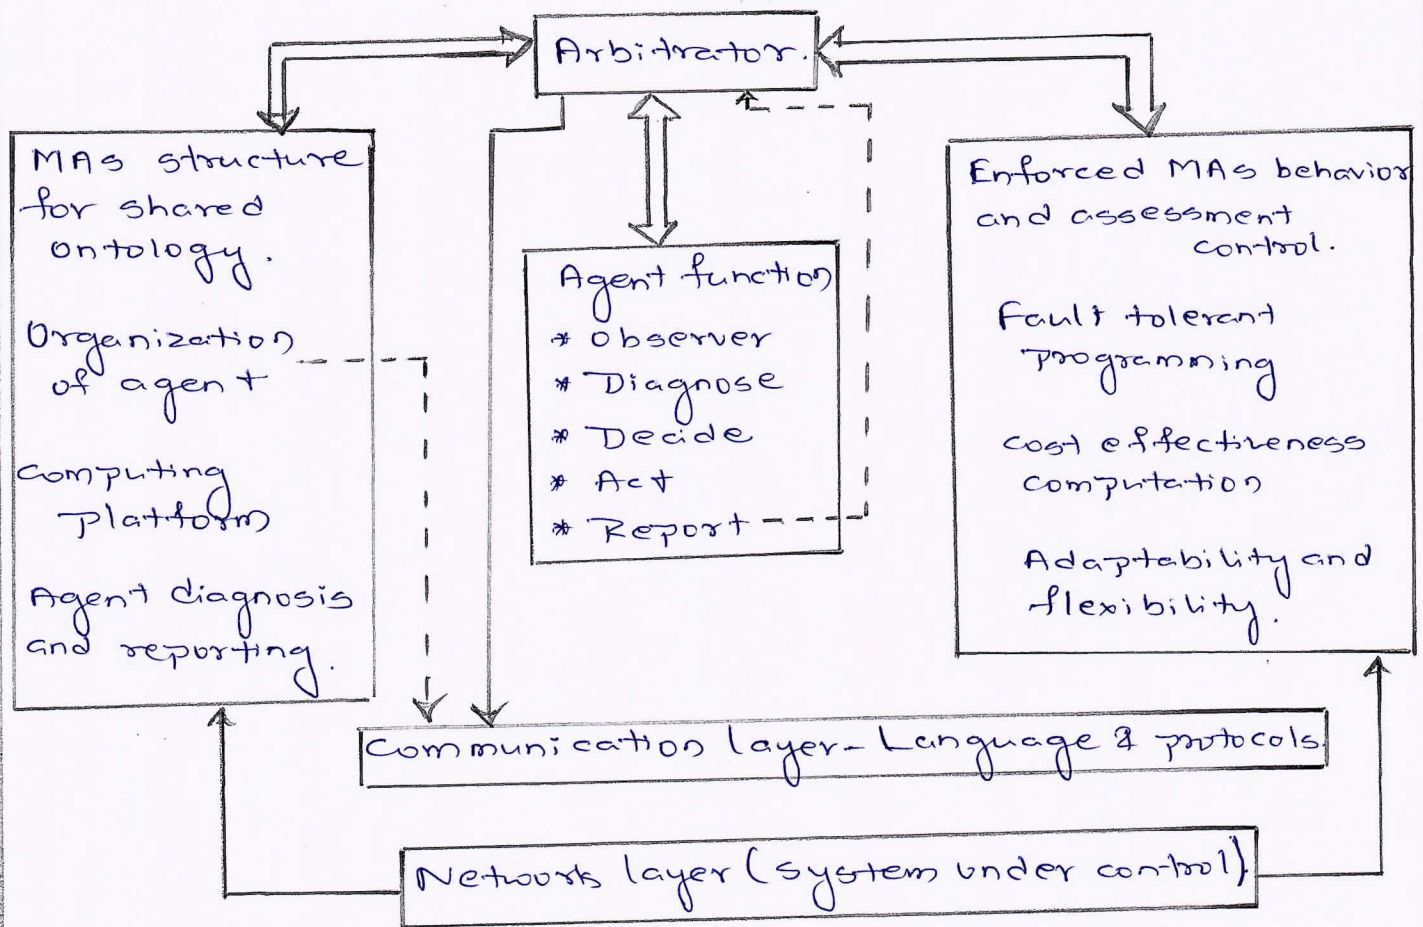 Arbitrator.
MAs structure
for shared
ontology.
Organization
of agent
computing
platform
Agent diagnosis
and reporting.
Agent function
* Observer
* Diagnose
* Decide
* Act
* Report
Enforced MAs behavior
and assessment
control.
Fault tolerant
programming
cost effectiveness
computation
Adaptability and
flexibility.
Communication layer - Language & protocols.
Network layer (system under control)